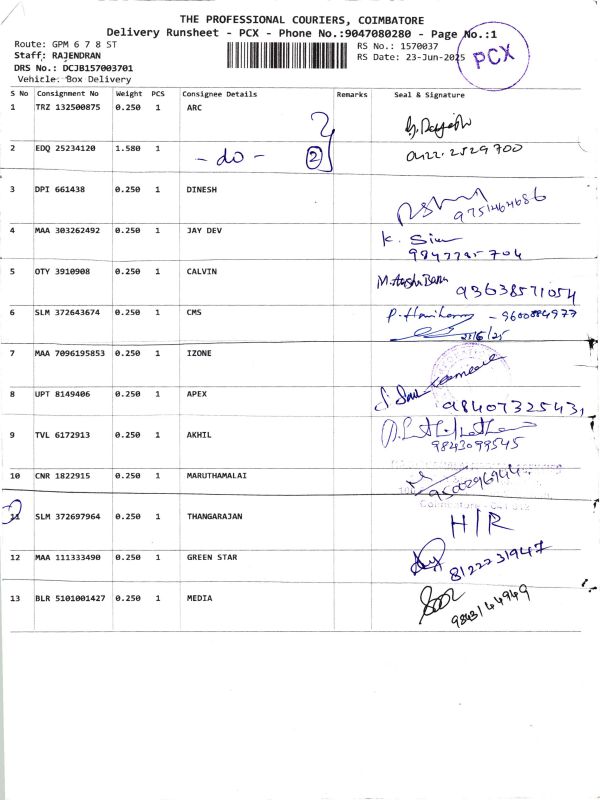 THE PROFESSIONAL COURIERS, COIMBATORE
Delivery Runsheet - PCX - Phone No.:9047080280 - Page No.:1
Route: GPM 6 7 8 ST
RS No.: 1570037
Staff: RAJENDRAN
RS Date: 23-Jun-2025
PCX
DRS No.: DCJB157003701
Vehicle: Box Delivery
S No Consignment No Weight PCS Consignee Details Remarks Seal & Signature
1 TRZ 132500875 0.250 1 ARC
2 EDQ 25234120 1.580 1 - do - 2 0422. 2529700
3 DPI 661438 0.250 1 DINESH 9751464686
4 MAA 303262492 0.250 1 JAY DEV K.
5 OTY 3910908 0.250 1 CALVIN 93638571054
6 SLM 372643674 0.250 1 CMS
7 MAA 7096195853 0.250 1 IZONE
8 UPT 8149406 0.250 1 APEX 98407325431
9 TVL 6172913 0.250 1 AKHIL 9843099545
10 CNR 1822915 0.250 1 MARUTHAMALAI
11 SLM 372697964 0.250 1 THANGARAJAN H/R
12 MAA 111333490 0.250 1 GREEN STAR 8122231947
13 BLR 5101001427 0.250 1 MEDIA 9843144949